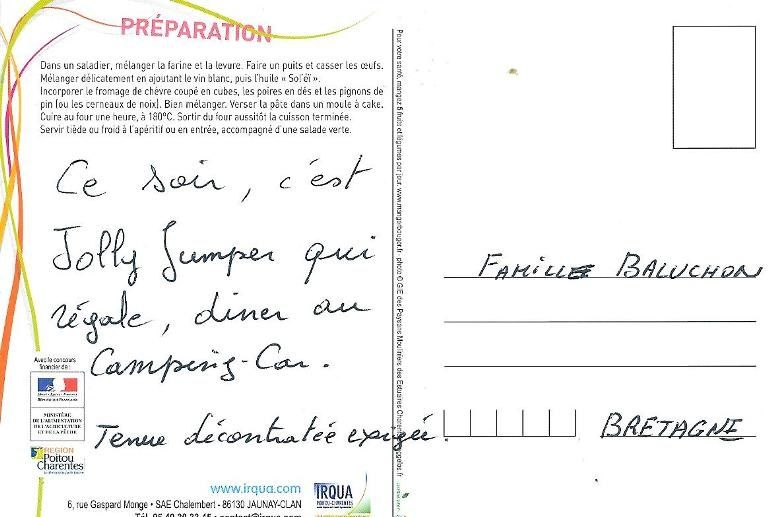 PRÉPARATION
Dans un saladier, mélanger la farine et la levure. Faire un puits et casser les œufs.
Mélanger délicatement en ajoutant le vin blanc, puis l'huile « Sol'éï ».
Incorporer le fromage de chèvre coupé en cubes, les poires en dés et les pignons de
pin (ou les cerneaux de noix). Bien mélanger. Verser la pâte dans un moule à cake.
Cuire au four une heure, à 180°C. Sortir du four aussitôt la cuisson terminée.
Servir tiède ou froid à l'apéritif ou en entrée, accompagné d'une salade verte.
Ce soir, c'est
Jolly Jumper qui
régale, diner au
Camping-Car.
Tenue décontratée exigée.
Avec le concours
financier de :
MINISTÈRE
DE L'ALIMENTATION
DE L'AGRICULTURE
ET DE LA PÊCHE
RÉGION
Poitou
Charentes
www.irqua.com
IRQUA
POITOU-CHARENTES
6, rue Gaspard Monge • SAE Chalembert - 86130 JAUNAY-CLAN
Pour votre santé, mangez 5 fruits et légumes par jour. www.mangerbouger.fr - photo © GIE des Paysans Meuniers des Estuaires Charentais
FAMILLE BALUCHON
BRETAGNE